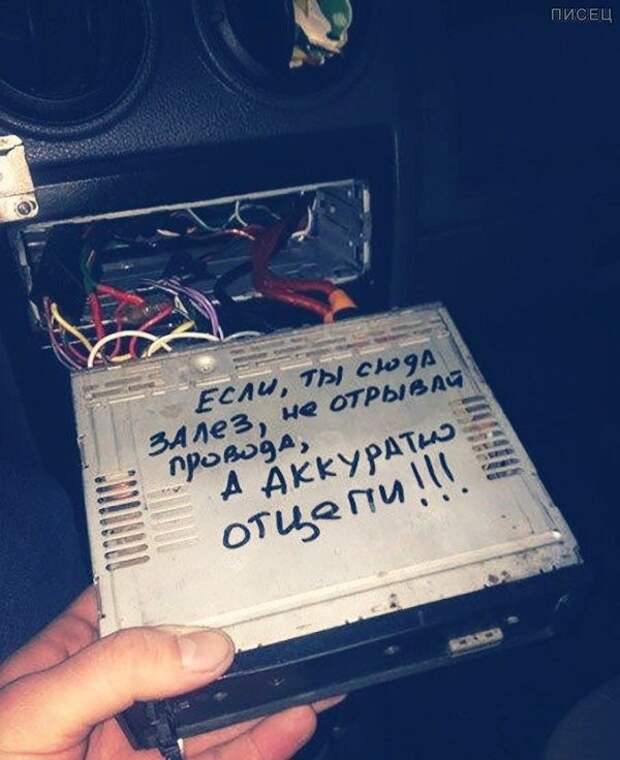 ПИСЕЦ
ЕСЛИ, ТЫ СЮДА
ЗАЛЕЗ, НЕ ОТРЫВАЙ
ПРОВОДА,
А АККУРАТНО
ОТЦЕПИ!!!